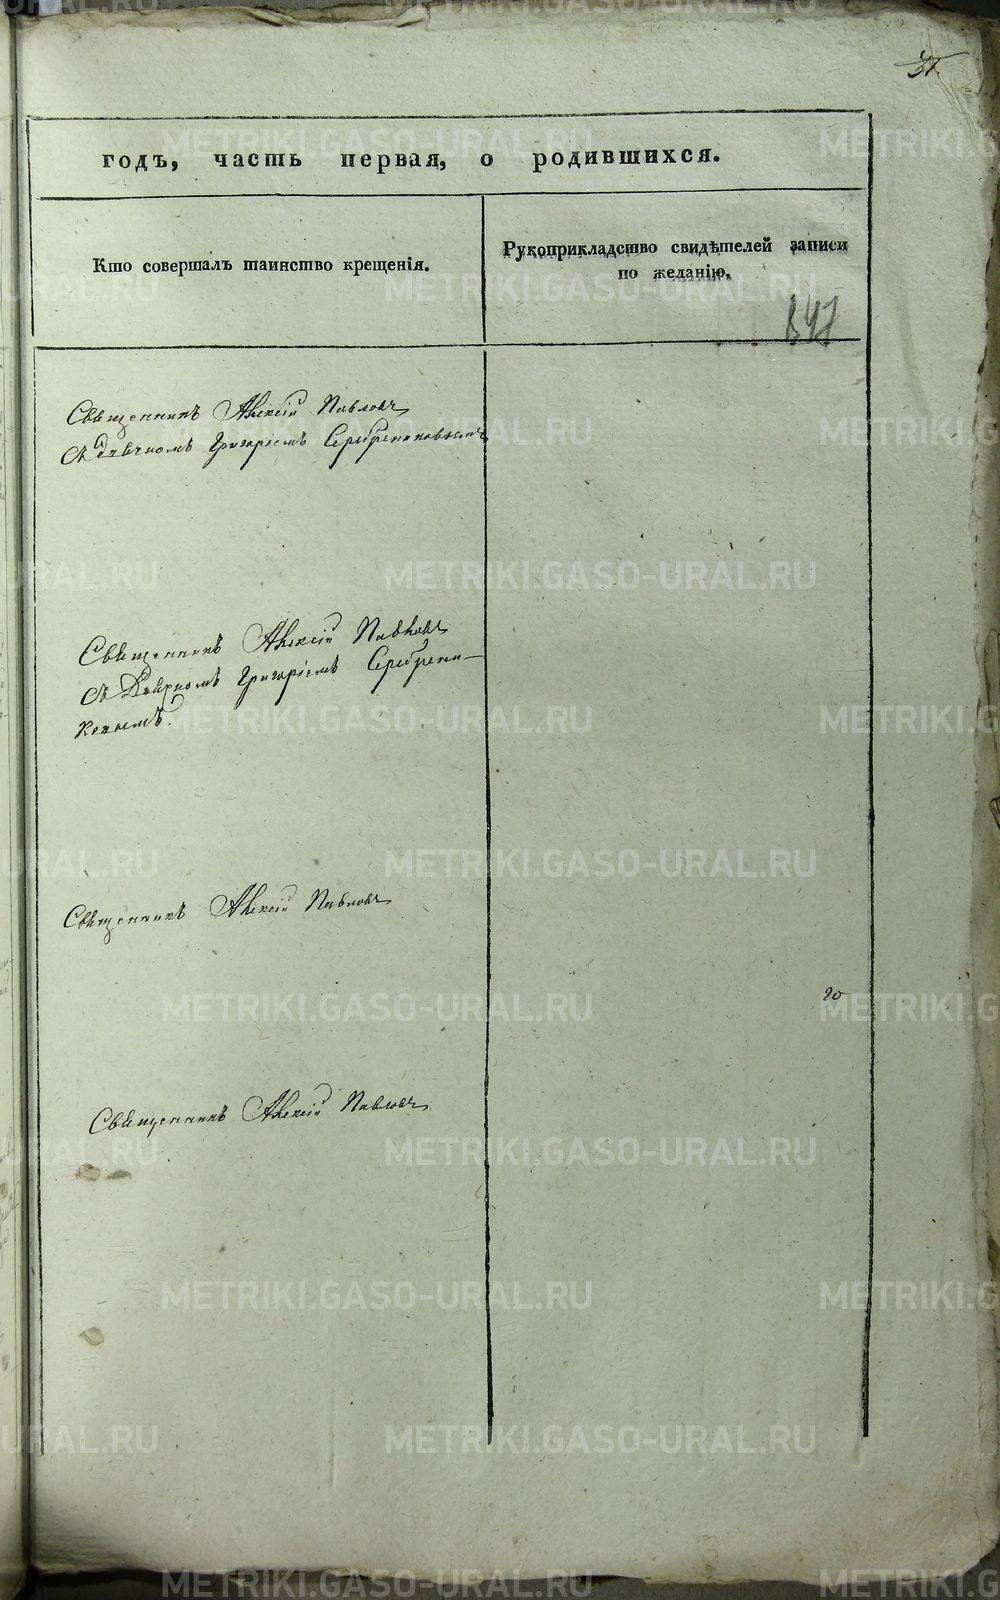 годъ, часть первая, о родившихся.
Кто совершалъ таинство крещенія.
Рукоприкладство свидѣтелей записи
по желанію.
847
Священникъ Алексій Павловъ
съ дьячкомъ Григоріемъ Серебрениковымъ
Священникъ Алексій Павловъ
съ Дьячкомъ Григоріемъ Серебрени-
ковымъ.
Священникъ Алексій Павловъ
20
Священникъ Алексій Павловъ
METRIKI.GASO-URAL.RU